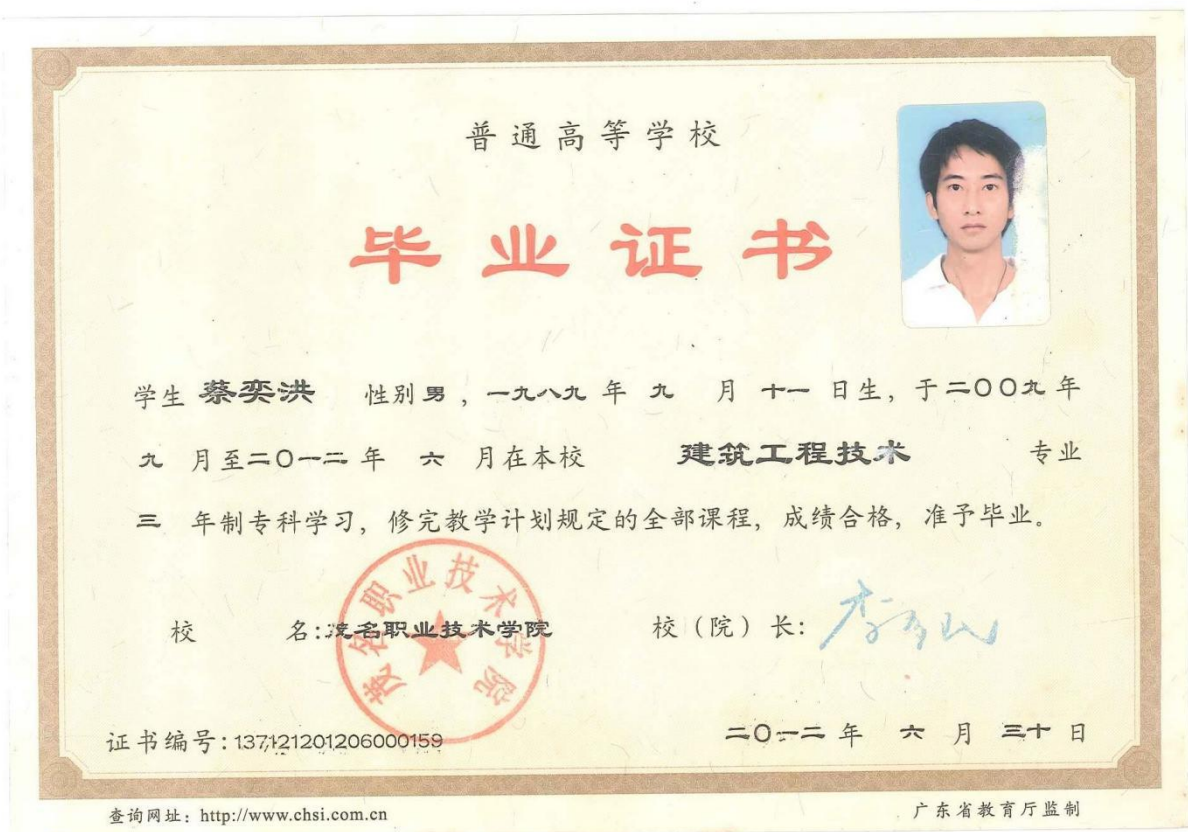 普通高等学校
毕业证书
学生 蔡奕洪 性别 男 ，一九八九 年 九 月 十一 日生，于二〇〇九年
九 月至二〇一二年 六 月在本校 建筑工程技术 专业
三 年制专科学习，修完教学计划规定的全部课程，成绩合格，准予毕业。
茂名职业技术学院
校 名：茂名职业技术学院 校（院）长：
证书编号：137121201206000159 二〇一二年 六 月 三十 日
查询网址：http://www.chsi.com.cn 广东省教育厅监制